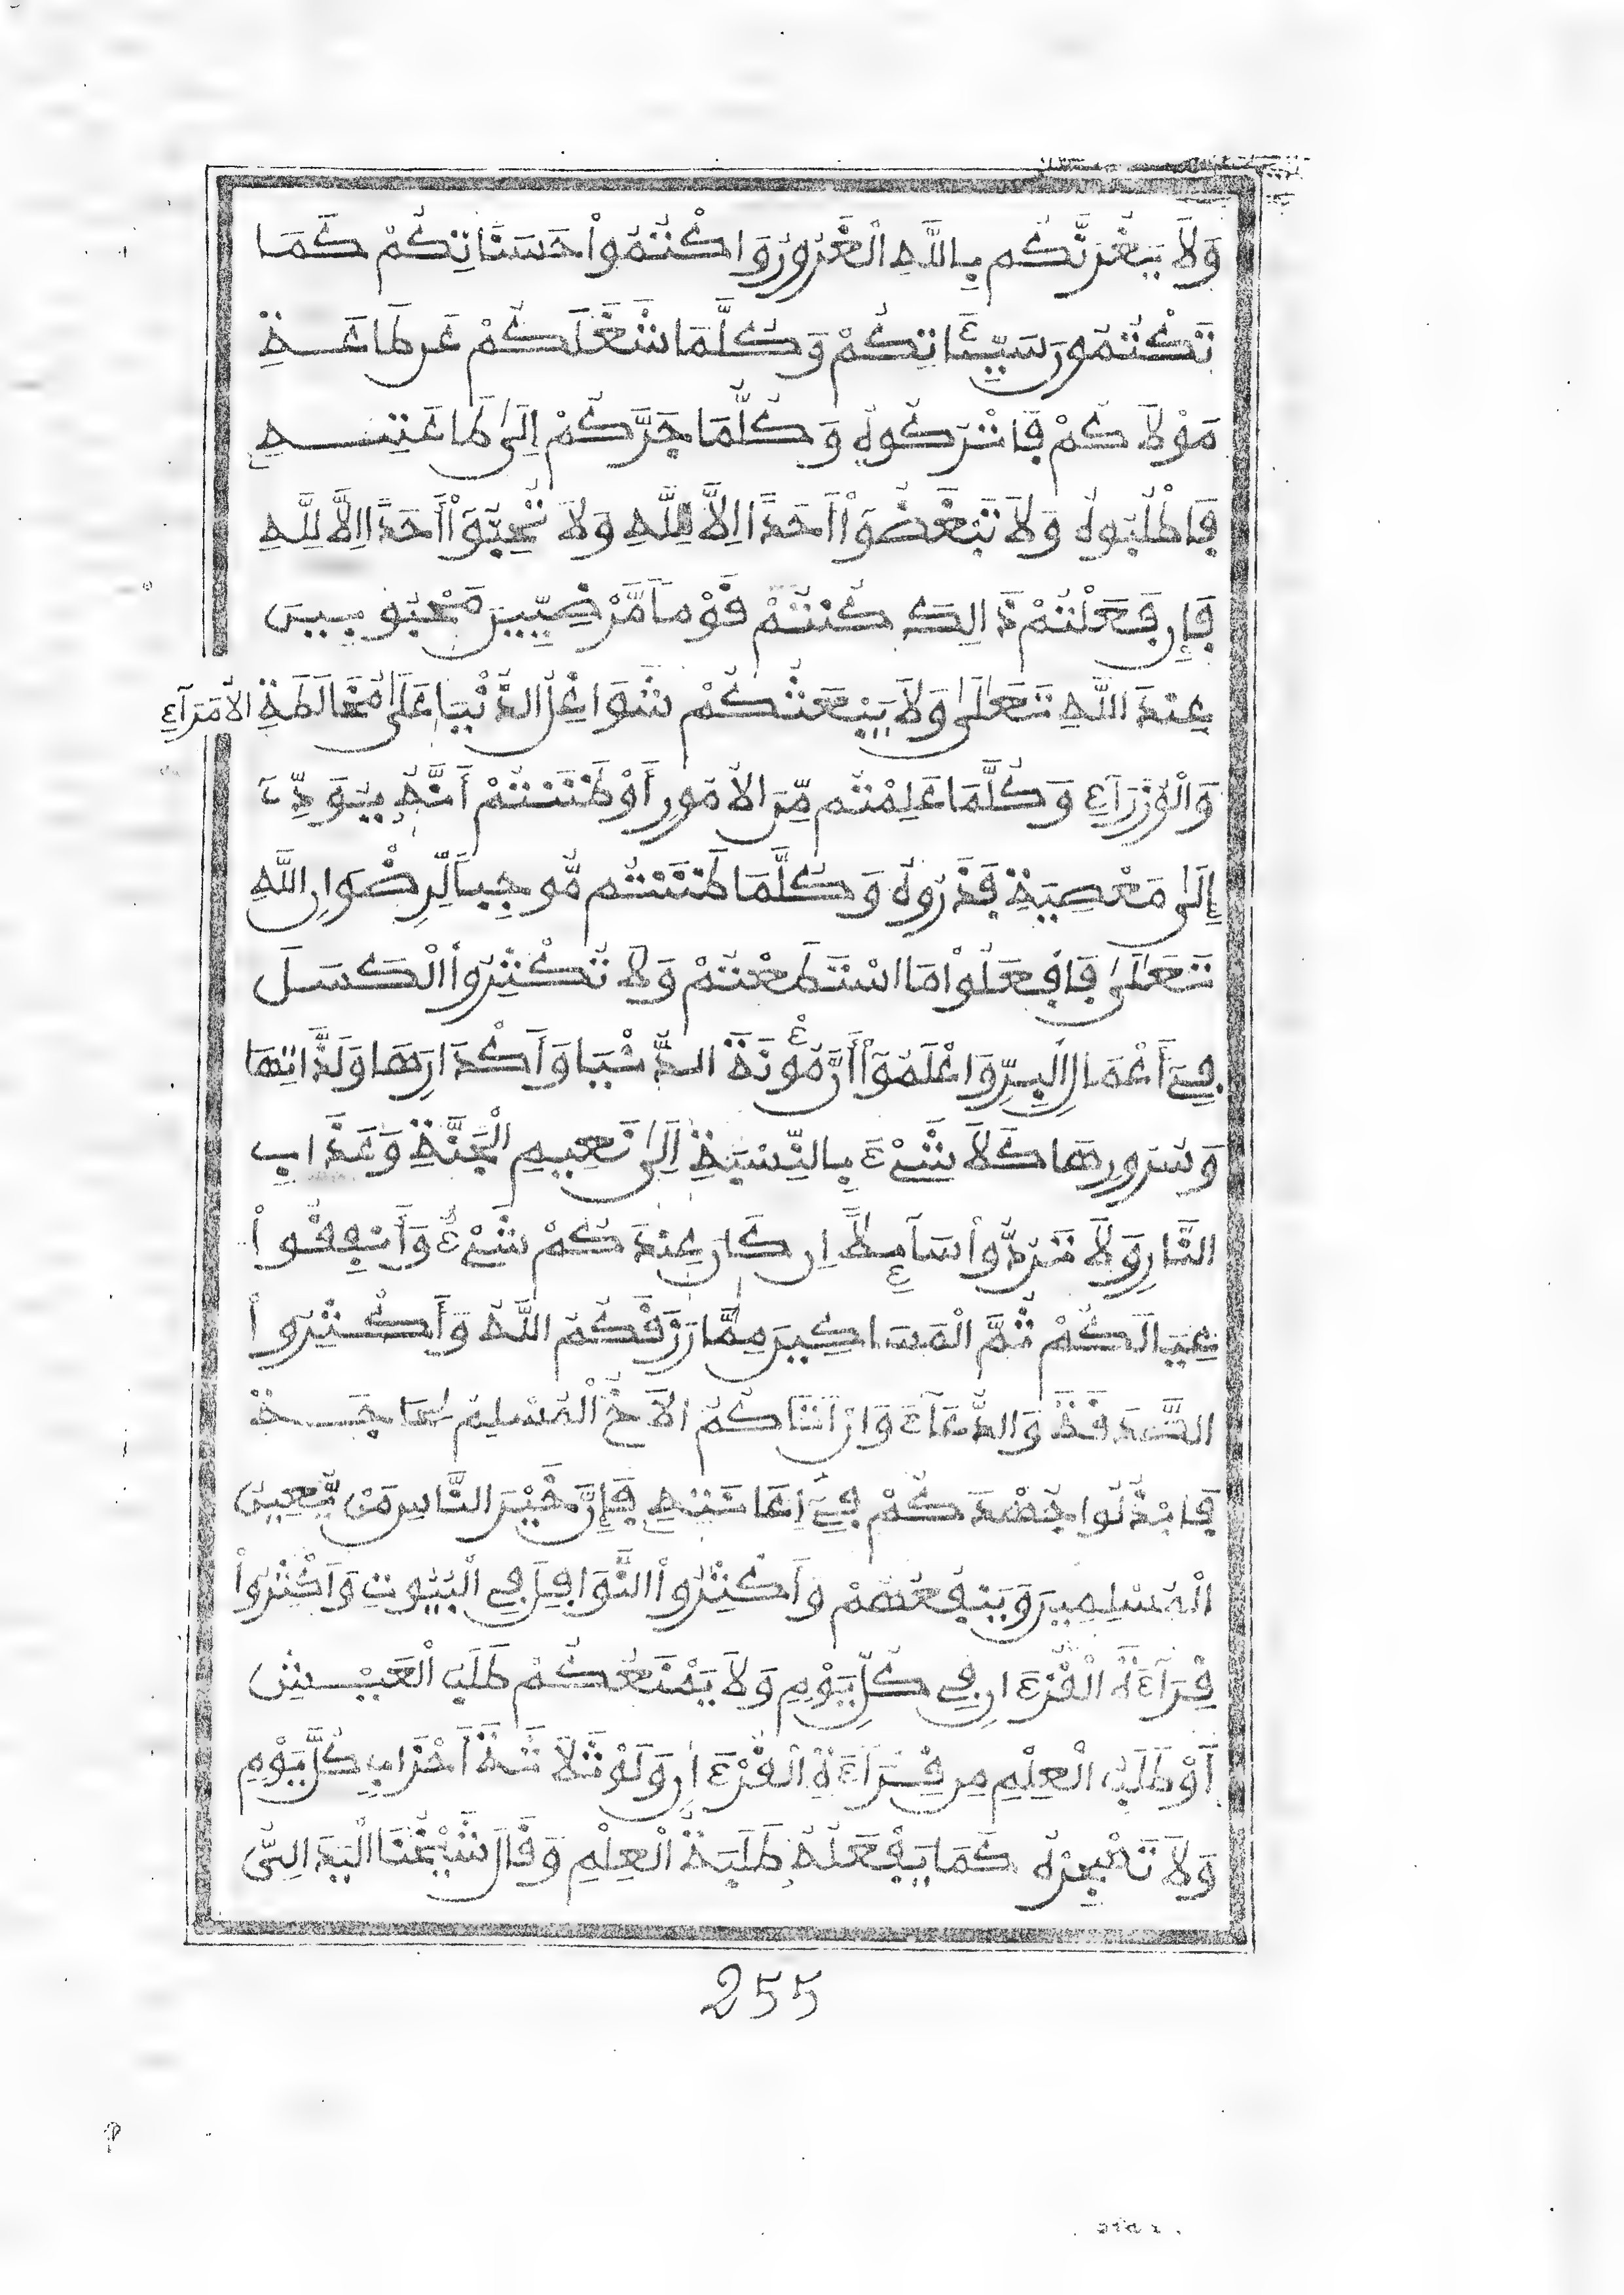 وَلَا يَغُرَّنَّكُم بِاللَّهِ الْغُرُورُ وَاكْتُمُواْ حَسَنَاتِكُمْ كَمَا
تَكْتُمُونَ سَيِّـَٔاتِكُمْ وَكُلَّمَا شَغَلَكُمْ عَن طَاعَةِ
مَوْلَاكُمْ فَاتْرُكُوهُ وَكُلَّمَا جَرَّكُمْ إِلَىٰ طَاعَتِهِ
فَاطْلُبُوهُ وَلَا تُبْغِضُوٓاْ أَحَدًا اِلَّا لِلَّهِ وَلَا تُحِبُّوٓاْ أَحَدًا اِلَّا لِلَّهِ
فَإِن فَعَلْتُمْ ذَالِكَ كُنتُمْ قَوْماً مَّرْضِيِّينَ مَحْبُوبِينَ
عِندَ اللَّهِ تَعَلَىٰ وَلَا يَبْعَثْكُمْ شَوَاغِلُ الدُّنْيَا عَلَىٰ مُخَالَطَةِ الْأُمَرَآءِ
وَالْوُزَرَآءِ وَكُلَّمَا عَلِمْتُم مِّنَ الْأُمُورِ أَوْ ظَنَنتُمْ أَنَّهُ يُوَدِّے
إِلَىٰ مَعْصِيَةٍ فَذَرُوهُ وَكُلَّمَا ظَنَنتُم مُّوجِباً لِّرِضْوَانِ اللَّهِ
تَعَلَىٰ فَافْعَلُواْ مَا اسْتَطَعْتُمْ وَلَا تُكْثِرُواْ الْكَسَلَ
فِےٓ أَعْمَالِ الْبِرِّ وَاعْلَمُوٓاْ أَنَّ مُؤْنَةَ الدُّنْيَا وَأَكْدَارَهَا وَلَذَّاتِهَا
وَسُرُورِهَا كَلَا شَيْءَ بِالنِّسْبَةِ اِلَىٰ نَعِيمِ الْجَنَّةِ وَعَذَابِ
النَّارِ وَلَا تَرُدُّواْ سَآئِلًا اِن كَانَ عِندَكُمْ شَيْءٌ وَأَنفِقُواْ
عِيَالَكُمْ ثُمَّ الْمَسَاكِينَ مِمَّا رَزَقَكُمُ اللَّهُ وَأَكْثِرُواْ
الصَّدَقَةَ وَالدُّعَآءَ وَإِنْ اَتَاكُمُ الْأَخُ الْمُسْلِمُ لِحَاجَةٍ
فَابْذُلُوا جُهْدَكُمْ فِےٓ إِعَانَتِهِ فَإِنَّ خَيْرَ النَّاسِ مَنْ يُّعِينُ
الْمُسْلِمِينَ وَيَنفَعُهُمْ وَأَكْثِرُواْ النَّوَافِلَ فِي الْبُيُوتِ وَأَكْثِرُواْ
قِرَآءَةَ الْقُرْءَانِ فِي كُلِّ يَوْمٍ وَلَا يَمْنَعُكُمْ طَلَبُ الْعَيْشِ
أَوْ طَلَبُ الْعِلْمِ مِن قِرَآءَةِ الْقُرْءَانِ وَلَوْ ثَلَاثَةَ أَحْزَابٍ كُلَّ يَوْمٍ
وَلَا تَهْجُرْهُ كَمَا يَفْعَلُهُ طَلَبَةُ الْعِلْمِ وَقَالَ شَيْخُنَا الْيَدَالِيُّ
255